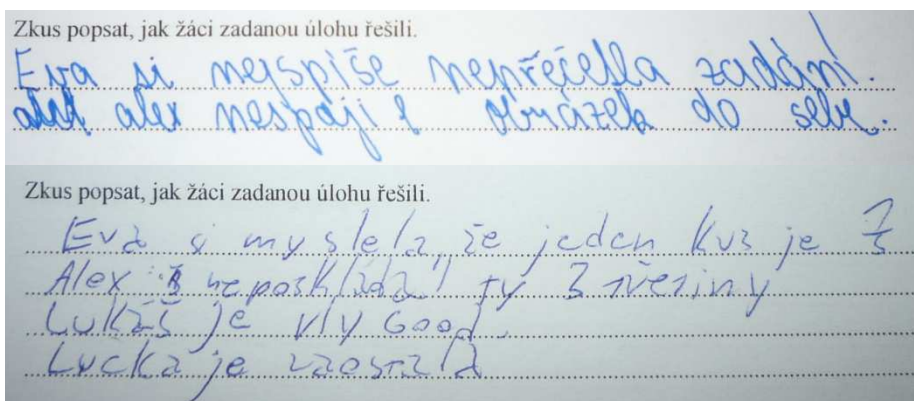 Zkus popsat, jak žáci zadanou úlohu řešili.
Eva si nejspíše nepřečetla zadání.
alex nespojil obrázek do sebe.
Zkus popsat, jak žáci zadanou úlohu řešili.
Eva si myslela, že jeden kus je
Alex neposkládal ty 3 třetiny
Lukáš je vly Good.
Lucka je zaostalá